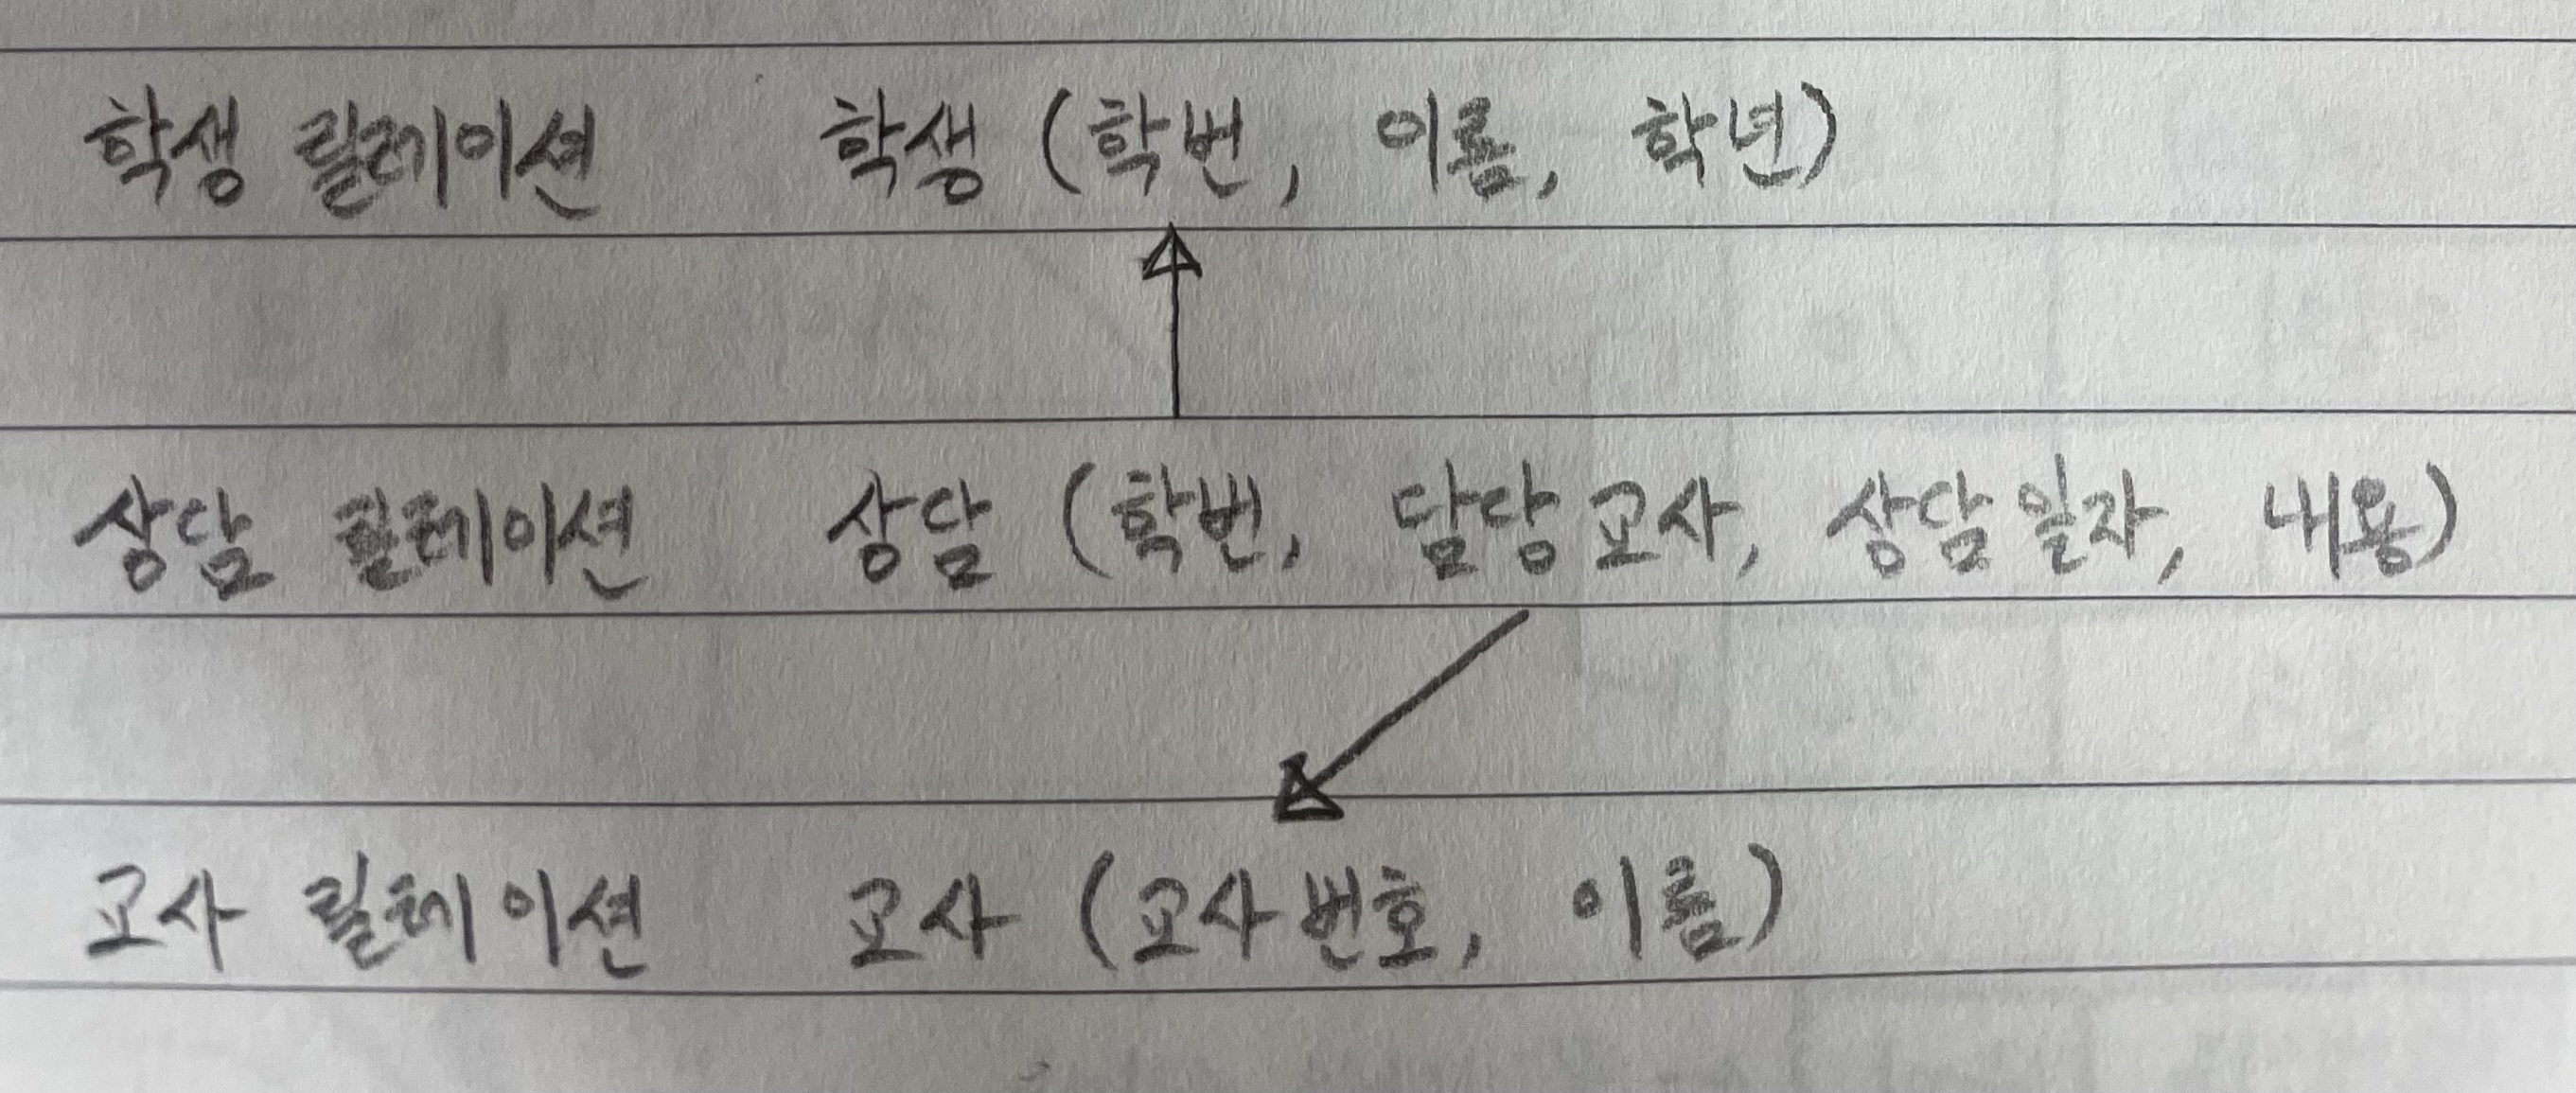 학생 릴레이션 학생 (학번, 이름, 학년)
상담 릴레이션 상담 (학번, 담당교사, 상담일자, 내용)
교사 릴레이션 교사 (교사번호, 이름)